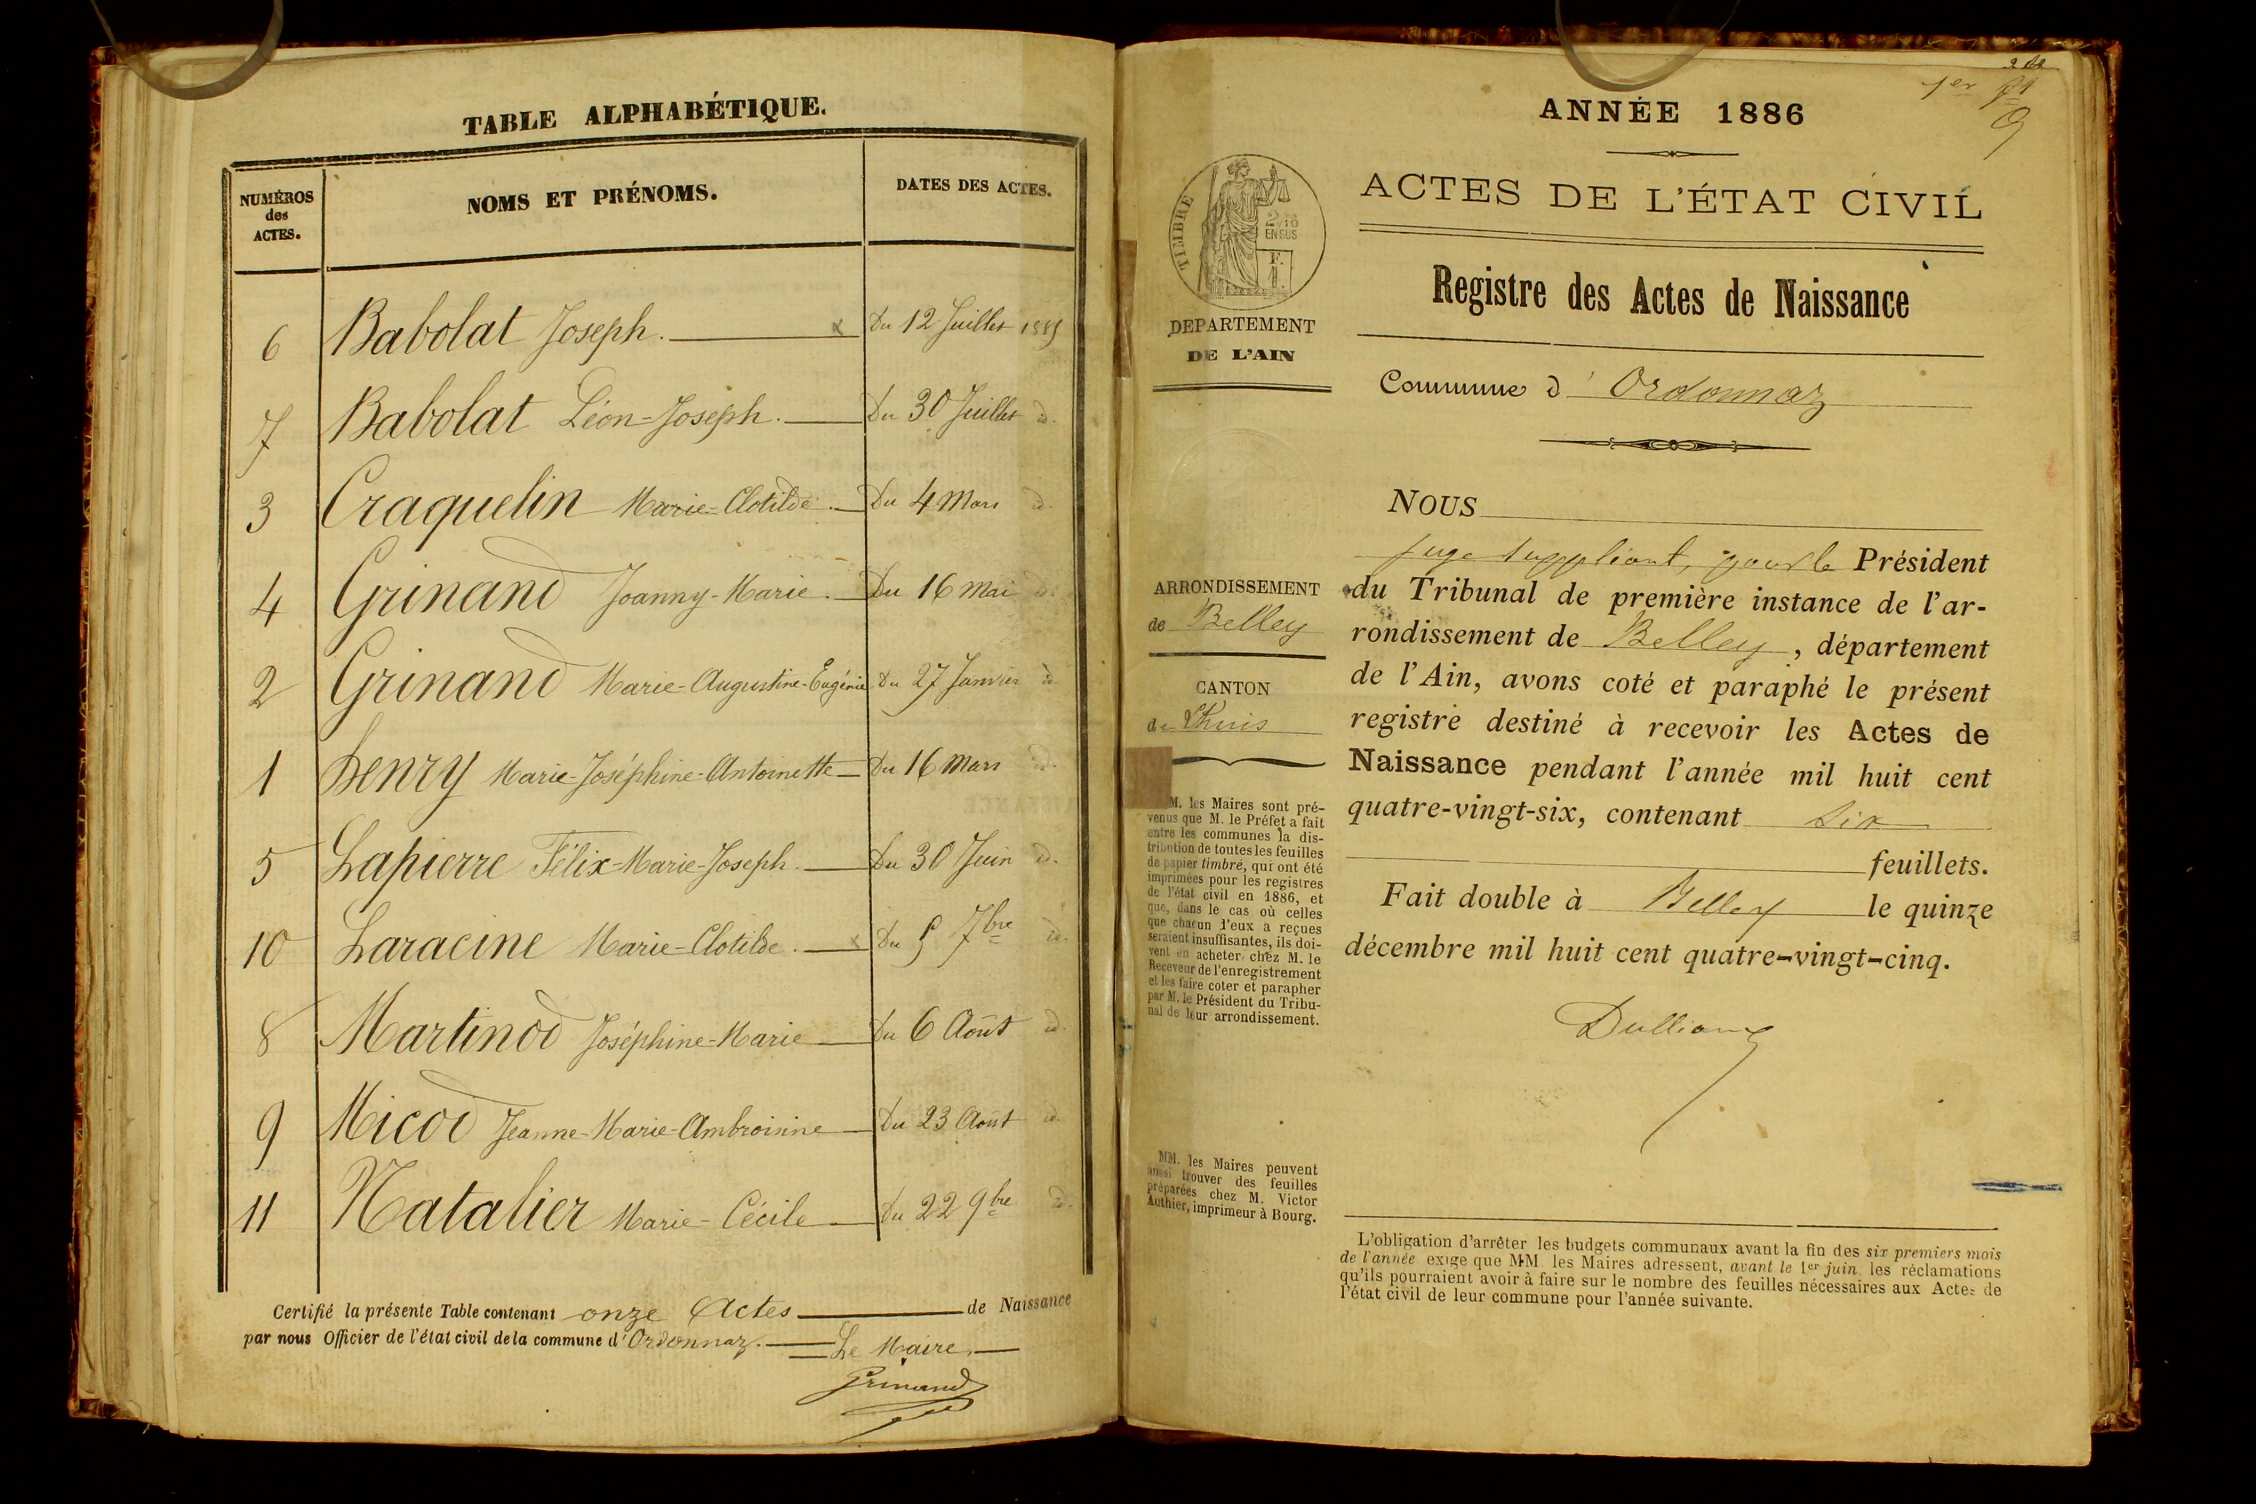 TABLE ALPHABÉTIQUE.
NUMÉROS des ACTES. NOMS ET PRÉNOMS. DATES DES ACTES.
6 Babolat Joseph. Du 12 Juillet 1885
7 Babolat Léon-Joseph. Du 30 Juillet d.
3 Craquelin Marie-Clotilde. Du 4 Mars d.
4 Grinand Joanny-Marie. Du 16 Mai d.
2 Grinand Marie-Augustine-Eugénie Du 27 Janvier d.
1 Henry Marie-Joséphine-Antoinette Du 16 Mars d.
5 Lapierre Félix-Marie-Joseph. Du 30 Juin d.
10 Laracine Marie-Clotilde. Du 5 7bre d.
8 Martinod Joséphine-Marie Du 6 Août d.
9 Micod Jeanne-Marie-Ambroisine Du 23 Août d.
11 Natalier Marie-Cécile Du 22 9bre d.
Certifié la présente Table contenant onze Actes de Naissance
par nous Officier de l'état civil de la commune d'Ordonnaz.
Le Maire,
Grinand
1er
ANNÉE 1886
ACTES DE L'ÉTAT CIVIL
Registre des Actes de Naissance
Commune d'Ordonnaz
TIMBRE
2/10 EN SUS
F. 1
DEPARTEMENT
DE L'AIN
ARRONDISSEMENT
de Belley
CANTON
de Lhuis
MM. les Maires sont pré-
venus que M. le Préfet a fait
entre les communes la dis-
tribution de toutes les feuilles
de papier timbré, qui ont été
imprimées pour les registres
de l'état civil en 1886, et
que, dans le cas où celles
que chacun d'eux a reçues
seraient insuffisantes, ils doi-
vent en acheter chez M. le
Receveur de l'enregistrement
et les faire coter et parapher
par M. le Président du Tribu-
nal de leur arrondissement.
MM. les Maires peuvent
aussi trouver des feuilles
préparées chez M. Victor
Authier, imprimeur à Bourg.
NOUS
juge suppléant, pour le Président
du Tribunal de première instance de l'ar-
rondissement de Belley, département
de l'Ain, avons coté et paraphé le présent
registre destiné à recevoir les Actes de
Naissance pendant l'année mil huit cent
quatre-vingt-six, contenant six
feuillets.
Fait double à Belley le quinze
décembre mil huit cent quatre-vingt-cinq.
L'obligation d'arrêter les budgets communaux avant la fin des six premiers mois
de l'année exige que MM. les Maires adressent, avant le 1er juin, les réclamations
qu'ils pourraient avoir à faire sur le nombre des feuilles nécessaires aux Actes de
l'état civil de leur commune pour l'année suivante.